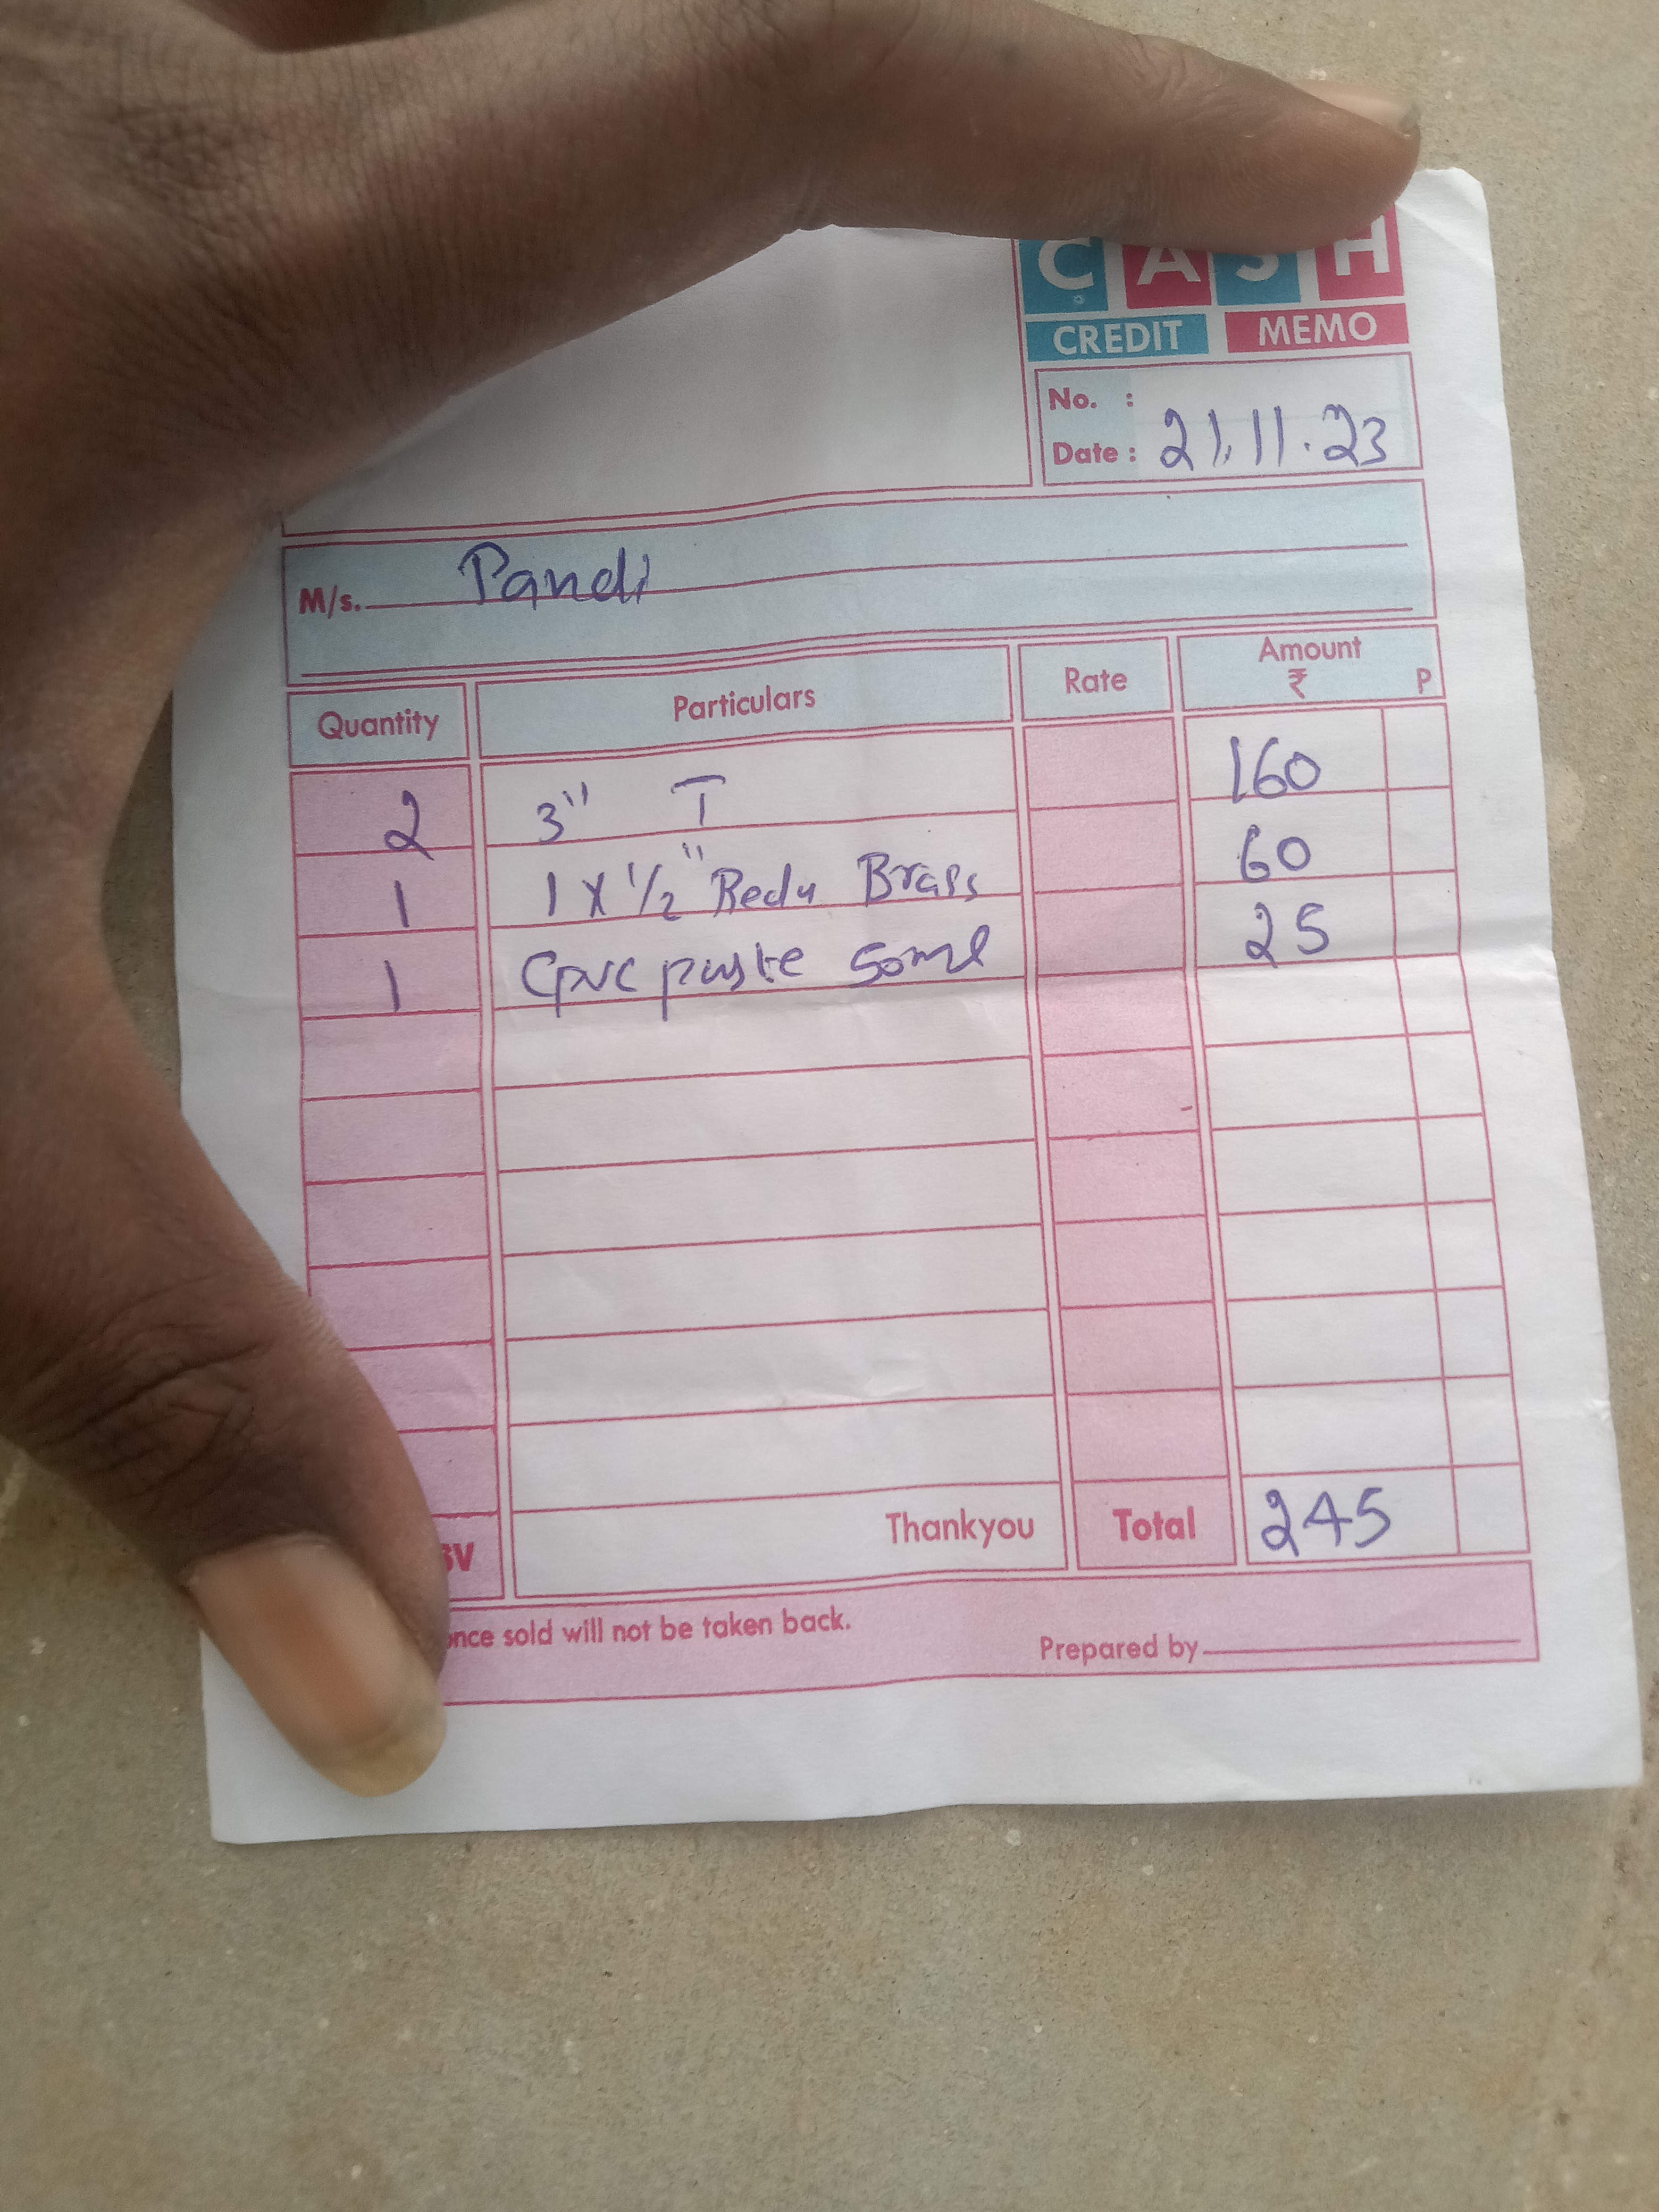 CASH
CREDIT MEMO
No. :
Date : 21.11.23
M/s. Pandi
Quantity Particulars Rate Amount ₹ P
2 3" T 160
1 1 X 1/2" Redu Brass 60
1 Cpvc paste 50ml 25
Thankyou Total 245
once sold will not be taken back.
Prepared by